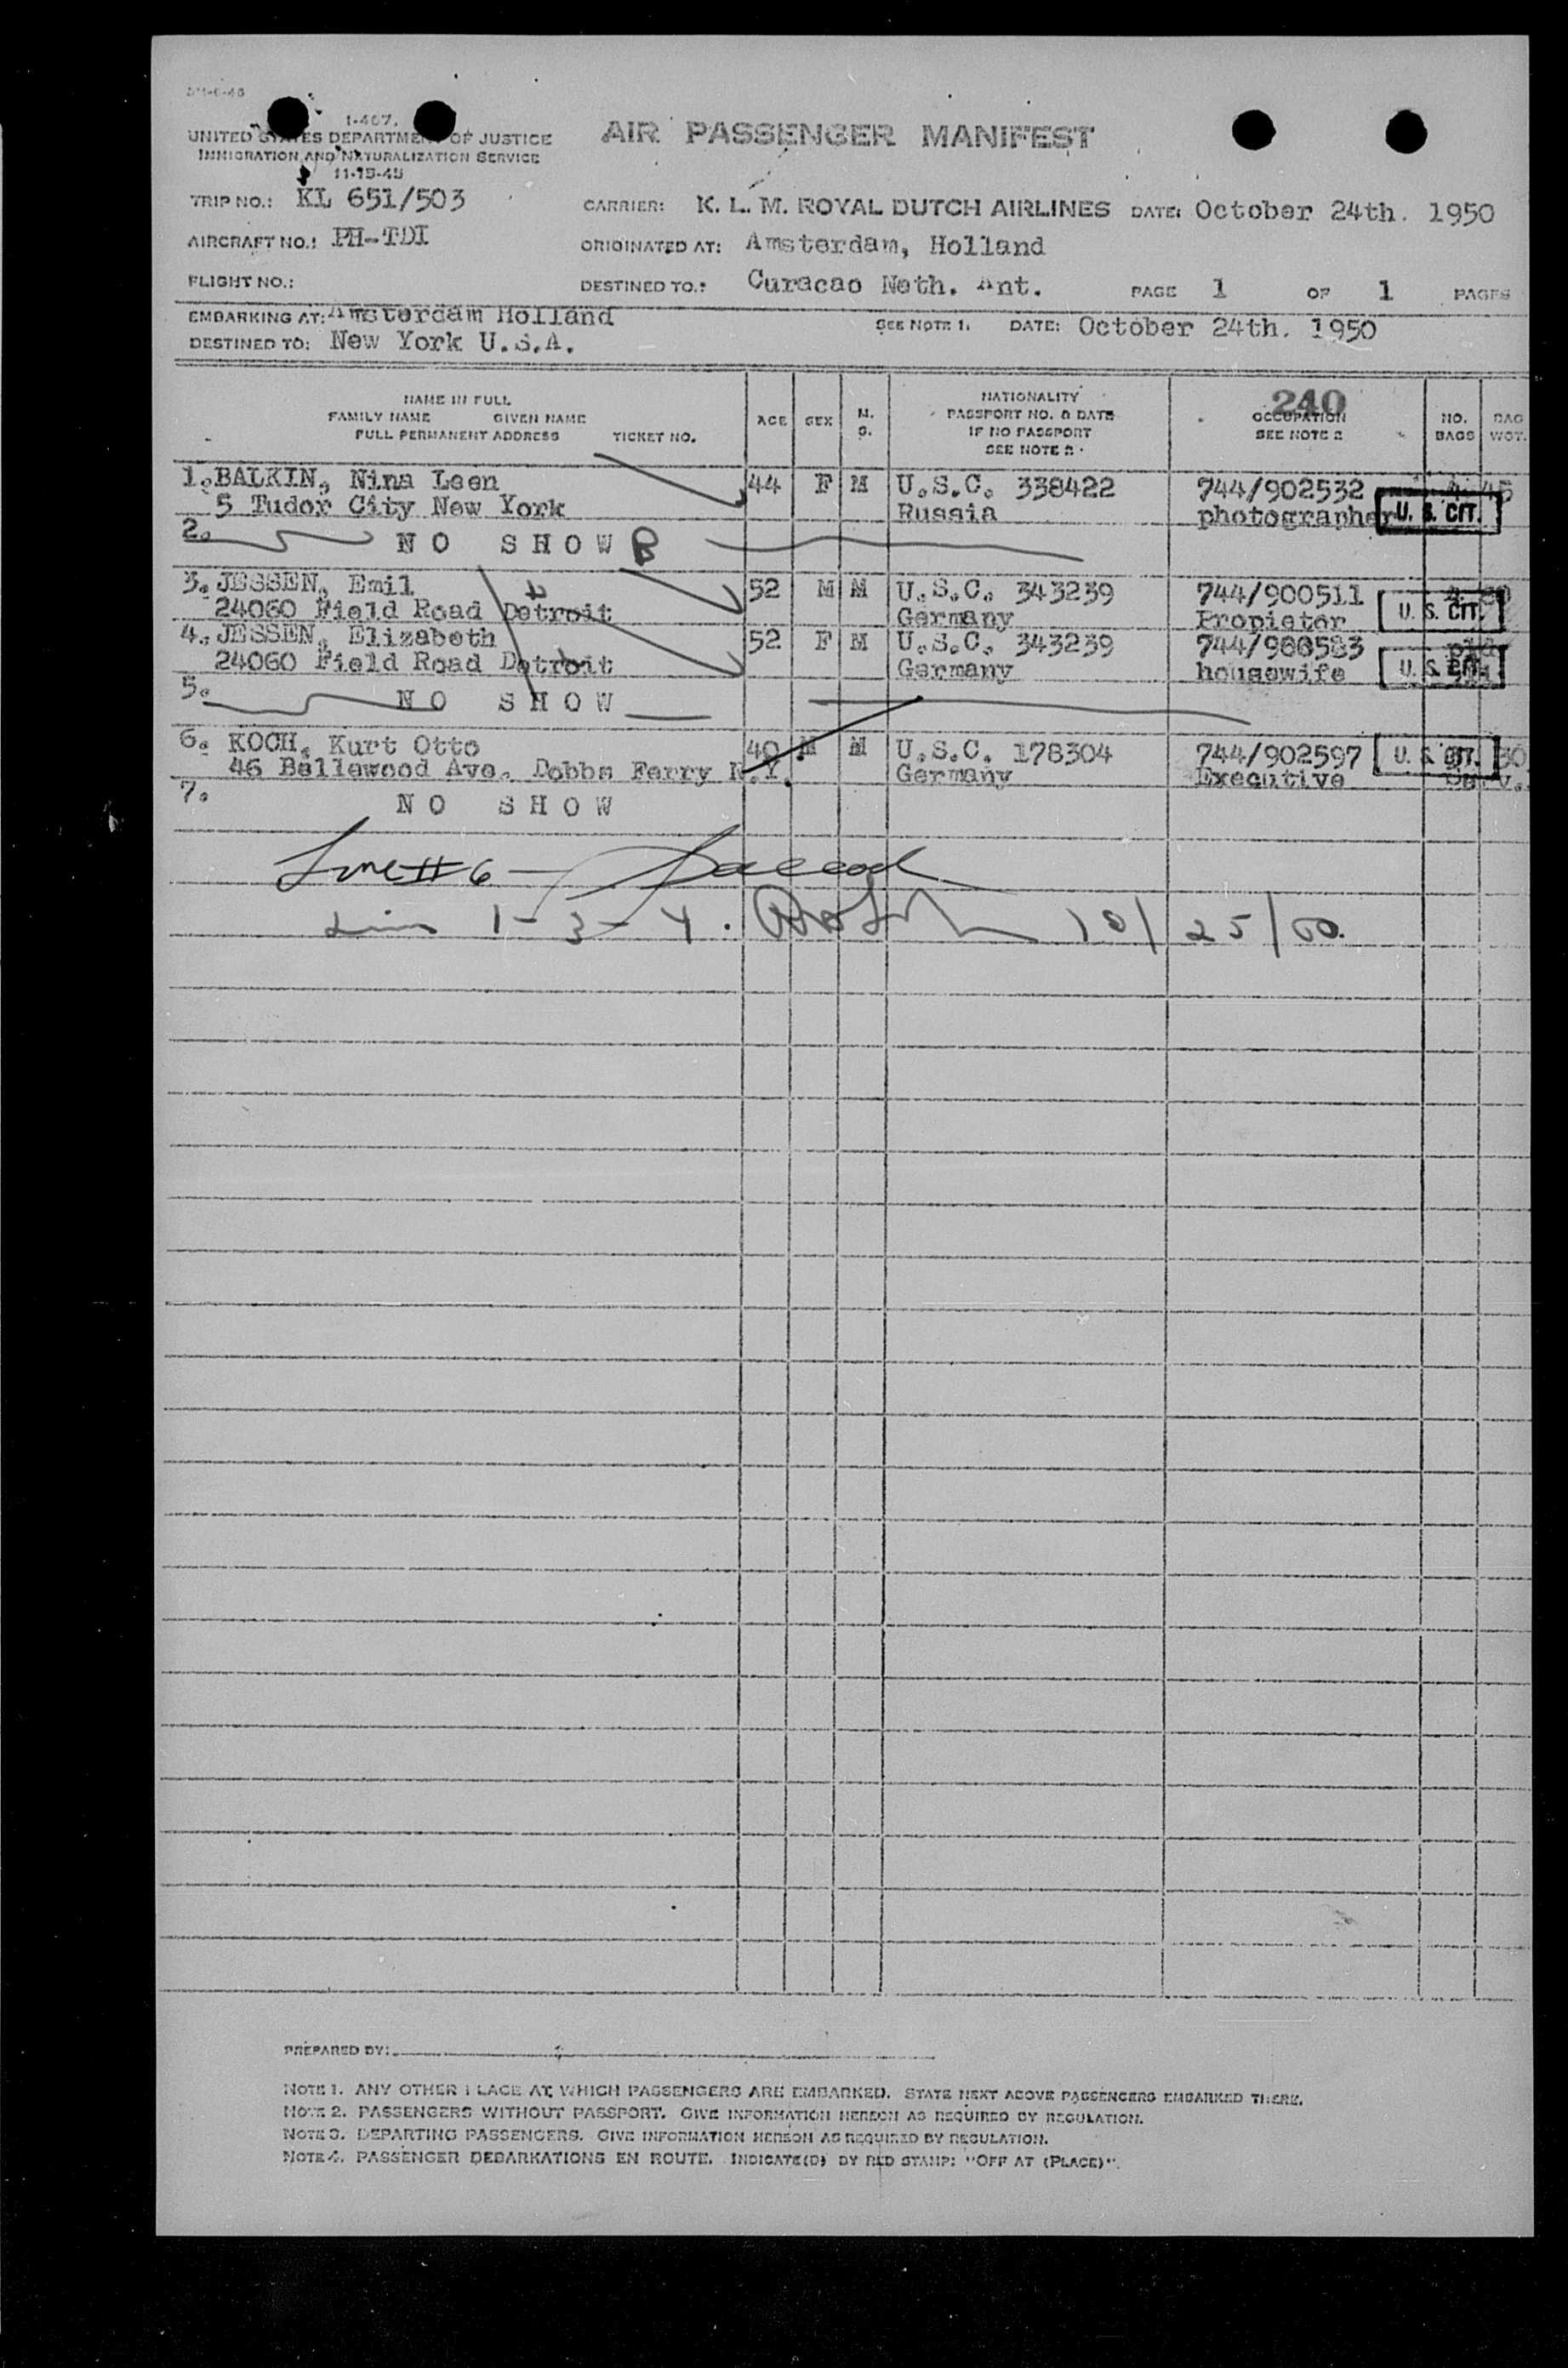 I-467.
UNITED STATES DEPARTMENT OF JUSTICE
IMMIGRATION AND NATURALIZATION SERVICE
11-15-45
AIR PASSENGER MANIFEST
TRIP NO.: KL 651/503
CARRIER: K. L. M. ROYAL DUTCH AIRLINES DATE: October 24th. 1950
AIRCRAFT NO.: PH-TDI
ORIGINATED AT: Amsterdam, Holland
FLIGHT NO.:
DESTINED TO.: Curacao Neth. Ant. PAGE 1 OF 1 PAGES
EMBARKING AT: Amsterdam Holland SEE NOTE 1. DATE: October 24th. 1950
DESTINED TO: New York U.S.A.
240
NAME IN FULL
FAMILY NAME GIVEN NAME
FULL PERMANENT ADDRESS TICKET NO.
AGE SEX M. S.
NATIONALITY
PASSPORT NO. & DATE
IF NO PASSPORT
SEE NOTE 2
OCCUPATION
SEE NOTE 2
NO. BAGS
BAG WGT.
1. BALKIN, Nina Leen 44 F M U.S.C. 338422 744/902532 4 45
5 Tudor City New York Russia photographer U. S. CIT.
2. NO SHOW B
3. JESSEN, Emil 52 M M U.S.C. 343239 744/900511
24060 Field Road Detroit Germany Propietor U. S. CIT.
4. JESSEN, Elizabeth 52 F M U.S.C. 343239
24060 Field Road Detroit Germany housewife U. S. CIT.
5. NO SHOW
6. KOCH, Kurt Otto 40 M M U.S.C. 178304 744/902597 U. S. CIT. 30
46 Bellewood Ave. Dobbs Ferry N.Y. Germany Executive
7. NO SHOW
Line #6 -
1-3-4. 10/25/50.
PREPARED BY:
NOTE 1. ANY OTHER PLACE AT WHICH PASSENGERS ARE EMBARKED. STATE NEXT ABOVE PASSENGERS EMBARKED THERE.
NOTE 2. PASSENGERS WITHOUT PASSPORT. GIVE INFORMATION HEREON AS REQUIRED BY REGULATION.
NOTE 3. DEPARTING PASSENGERS. GIVE INFORMATION HEREON AS REQUIRED BY REGULATION.
NOTE 4. PASSENGER DEBARKATIONS EN ROUTE. INDICATE(D) BY RED STAMP: "OFF AT (PLACE)".